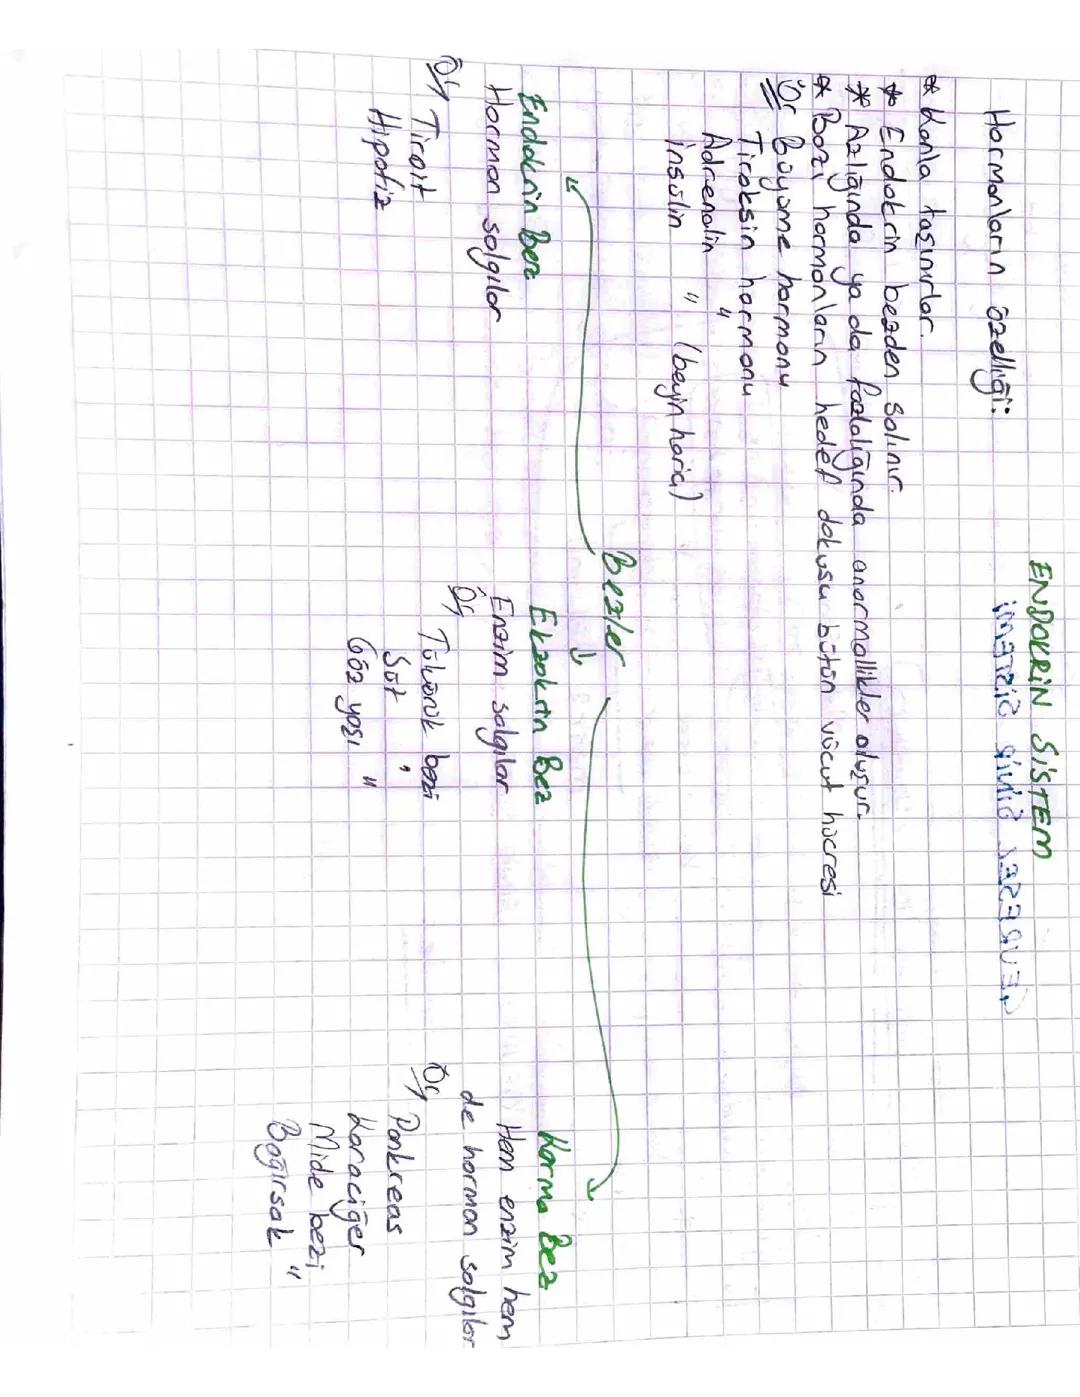 ENDOKRİN SİSTEM
Hormonların özelliği:
* Kanla taşınırlar.
* Endokrin bezden salınır.
* Azlığında ya da fazlalığında anormallikler oluşur.
* Bazı hormonların hedef dokusu bütün vücut hücresi
Ör Büyüme hormonu
Tiroksin hormonu
Adrenalin "
İnsülin " (beyin harici)
Bezler
Endokrin Bez
Hormon salgılar
Ör, Tiroit
Hipofiz
Ekzokrin Bez
Enzim salgılar
Ör,
Tükürük bezi
Süt "
Göz yaşı "
Karma Bez
Hem enzim hem
de hormon salgılar
Ör, Pankreas
Karaciğer
Mide bezi
Bağırsak "